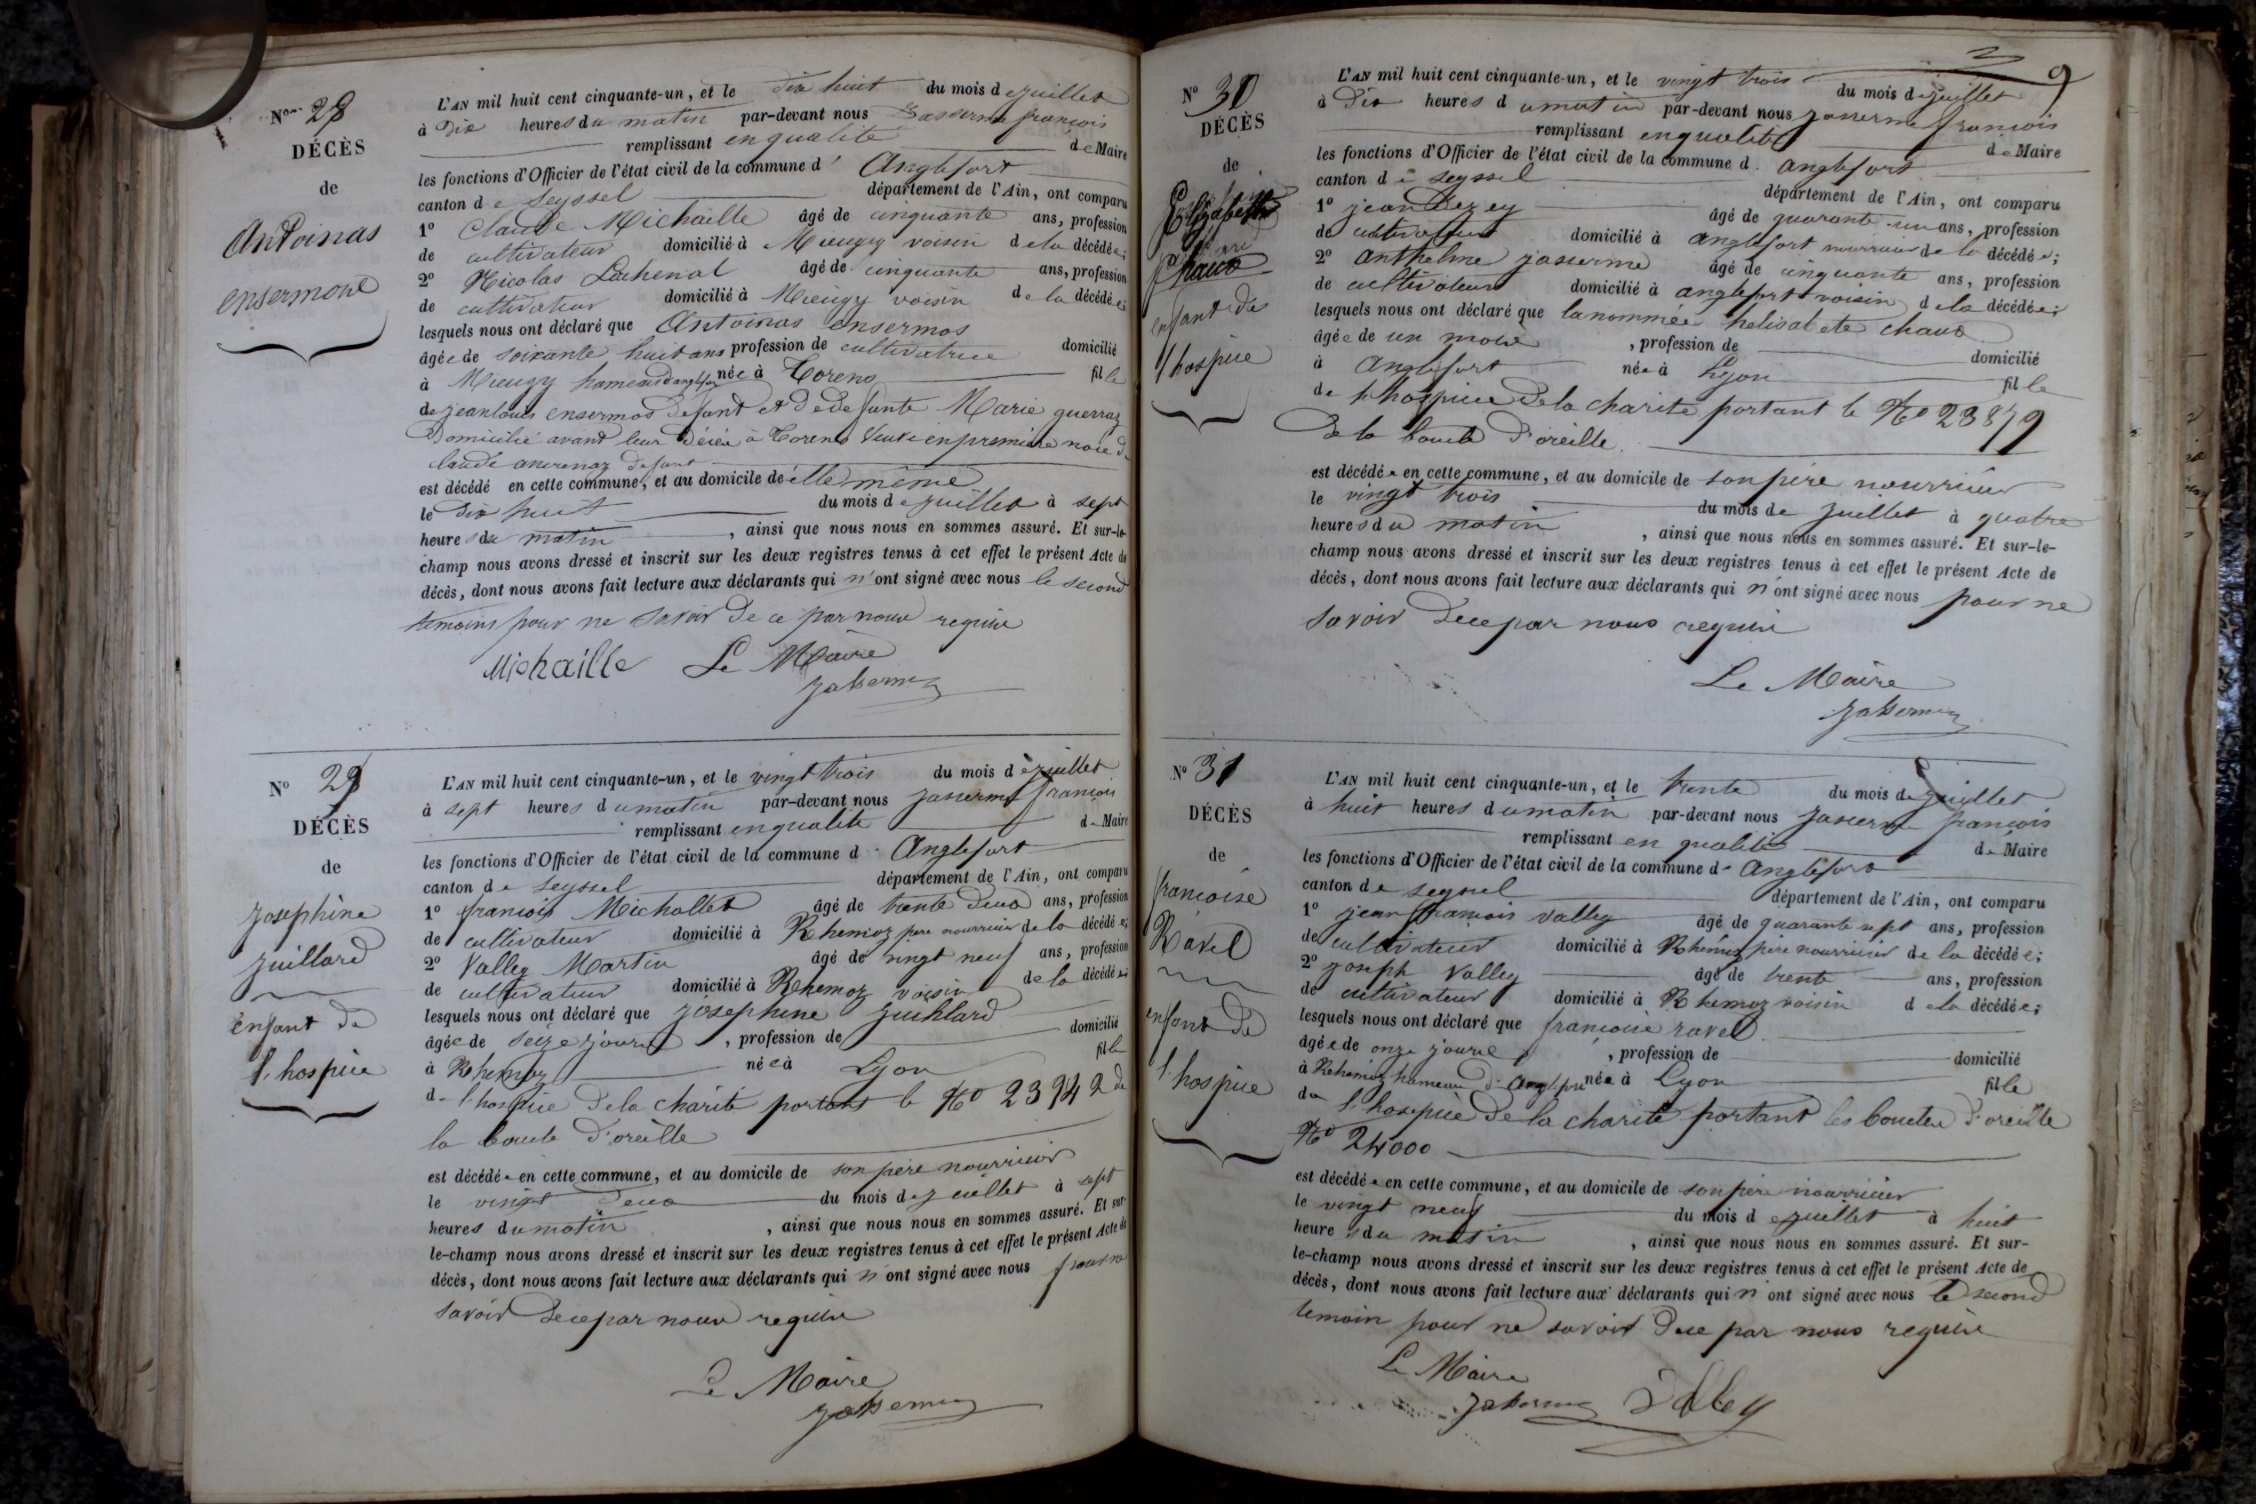 N° 28
DÉCÈS
de
Antoinas
ensermone
L'AN mil huit cent cinquante-un, et le dix huit du mois de juillet
à dix heures du matin par-devant nous Jasserme françois
remplissant en qualité de Maire
les fonctions d'Officier de l'état civil de la commune d' Anglefort
canton de Seyssel département de l'Ain, ont comparu
1° Claude Michaille âgé de cinquante ans, profession
de cultivateur domicilié à Mieugy voisin de la décédée;
2° Nicolas Lachenal âgé de cinquante ans, profession
de cultivateur domicilié à Mieugy voisin de la décédée;
lesquels nous ont déclaré que Antoinas ensermos
âgée de soixante huit ans profession de cultivatrice domicilié
à Mieugy hameau d'anglefort née à Coreno fille
de jean louis ensermos defunt et de defunte Marie guerraz
Domicilié avant leur décéé à Coreno Veuve en premiere noce de
claude defunt
est décédé en cette commune, et au domicile de elle même
le dix huit du mois de juillet à sept
heures du matin, ainsi que nous nous en sommes assuré. Et sur-le-
champ nous avons dressé et inscrit sur les deux registres tenus à cet effet le présent Acte de
décès, dont nous avons fait lecture aux déclarants qui n'ont signé avec nous le second
temoins pour ne savoir de ce par nous require
Michaille Le Maire
Jasserme
N° 29
DÉCÈS
de
Josephine
juillard
enfant de
l'hospice
L'AN mil huit cent cinquante-un, et le vingt trois du mois de juillet
à sept heures du matin par-devant nous Jasserme françois
remplissant en qualité de Maire
les fonctions d'Officier de l'état civil de la commune d' Anglefort
canton de Seyssel département de l'Ain, ont comparu
1° françois Michallet âgé de trente deux ans, profession
de cultivateur domicilié à Rhemoz pere nourricier de la décédée;
2° Valley Martin âgé de vingt neuf ans, profession
de cultivateur domicilié à Rhemoz voisin de la décédée;
lesquels nous ont déclaré que josephine juihlard
âgée de seize jours, profession de domicilié
à Rhemoz née à Lyon fille
de l'hospice de la charité portant le N° 23942 de
la boucle d'oreille
est décédée en cette commune, et au domicile de son pere nourricier
le vingt deux du mois de juillet à sept
heures du matin, ainsi que nous nous en sommes assuré. Et sur-
le-champ nous avons dressé et inscrit sur les deux registres tenus à cet effet le présent Acte de
décès, dont nous avons fait lecture aux déclarants qui n'ont signé avec nous pour ne
savoir de ce par nous require
Le Maire
Jasserme
9
N° 30
DÉCÈS
de
Elizabette
Chaux
enfant de
l'hospice
L'AN mil huit cent cinquante-un, et le vingt trois du mois de juillet
à dix heures du matin par-devant nous Jasserme françois
remplissant en qualité de Maire
les fonctions d'Officier de l'état civil de la commune d. anglefort
canton de seyssel département de l'Ain, ont comparu
1° jean Dezey âgé de quarante un ans, profession
de cultivateur domicilié à anglefort nourricier de la décédée;
2° anthelme jasserme âgé de cinquante ans, profession
de cultivateur domicilié à anglefort voisin de la décédée;
lesquels nous ont déclaré que la nommée helisabete chaux
âgée de un mois, profession de domicilié
à Anglefort née à Lyon fille
de l'hospice de la charité portant le N° 23879
de la boucle d'oreille
est décédée en cette commune, et au domicile de son père nourricier
le vingt trois du mois de juillet à quatre
heures du matin, ainsi que nous nous en sommes assuré. Et sur-le-
champ nous avons dressé et inscrit sur les deux registres tenus à cet effet le présent Acte de
décès, dont nous avons fait lecture aux déclarants qui n'ont signé avec nous pour ne
savoir de ce par nous require
Le Maire
Jasserme
N° 31
DÉCÈS
de
francoise
Ravel
enfant de
l'hospice
L'AN mil huit cent cinquante-un, et le trente du mois de juillet
à huit heures du matin par-devant nous Jasserme françois
remplissant en qualité de Maire
les fonctions d'Officier de l'état civil de la commune d' Anglefort
canton de seyssel département de l'Ain, ont comparu
1° jean francois valley âgé de quarante sept ans, profession
de cultivateur domicilié à Rhemoz père nourricier de la décédée;
2° joseph valley âgé de trente ans, profession
de cultivateur domicilié à Rhemoz voisin de la décédée;
lesquels nous ont déclaré que françoise ravel
âgée de onze jours, profession de domicilié
à Rehemoz hameau d' née à Lyon fille
de l'hospice de la charité portant les boucles d'oreille
N° 24000
est décédée en cette commune, et au domicile de son père nourricier
le vingt neuf du mois de juillet à huit
heures du matin, ainsi que nous nous en sommes assuré. Et sur-
le-champ nous avons dressé et inscrit sur les deux registres tenus à cet effet le présent Acte de
décès, dont nous avons fait lecture aux déclarants qui n'ont signé avec nous le second
temoin pour ne savoir de ce par nous require
Le Maire
Jasserme Valley